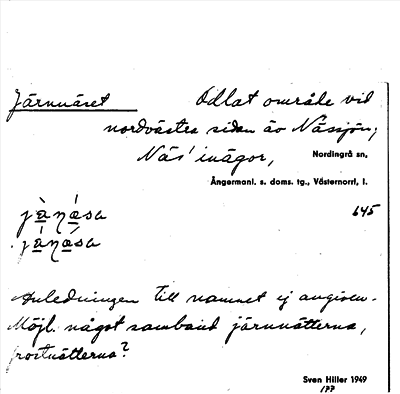 Järnnäset
Odlat område vid
nordvästra sidan av Nässjön,
Näs' inägor,
Nordingrå sn,
Ångermanl. s. doms. tg., Västernorrl. l.
645
Anledningen till namnet ej angiven.
Möjl. något samband järnnätterna,
frostnätterna?
Sven Hiller 1949
177